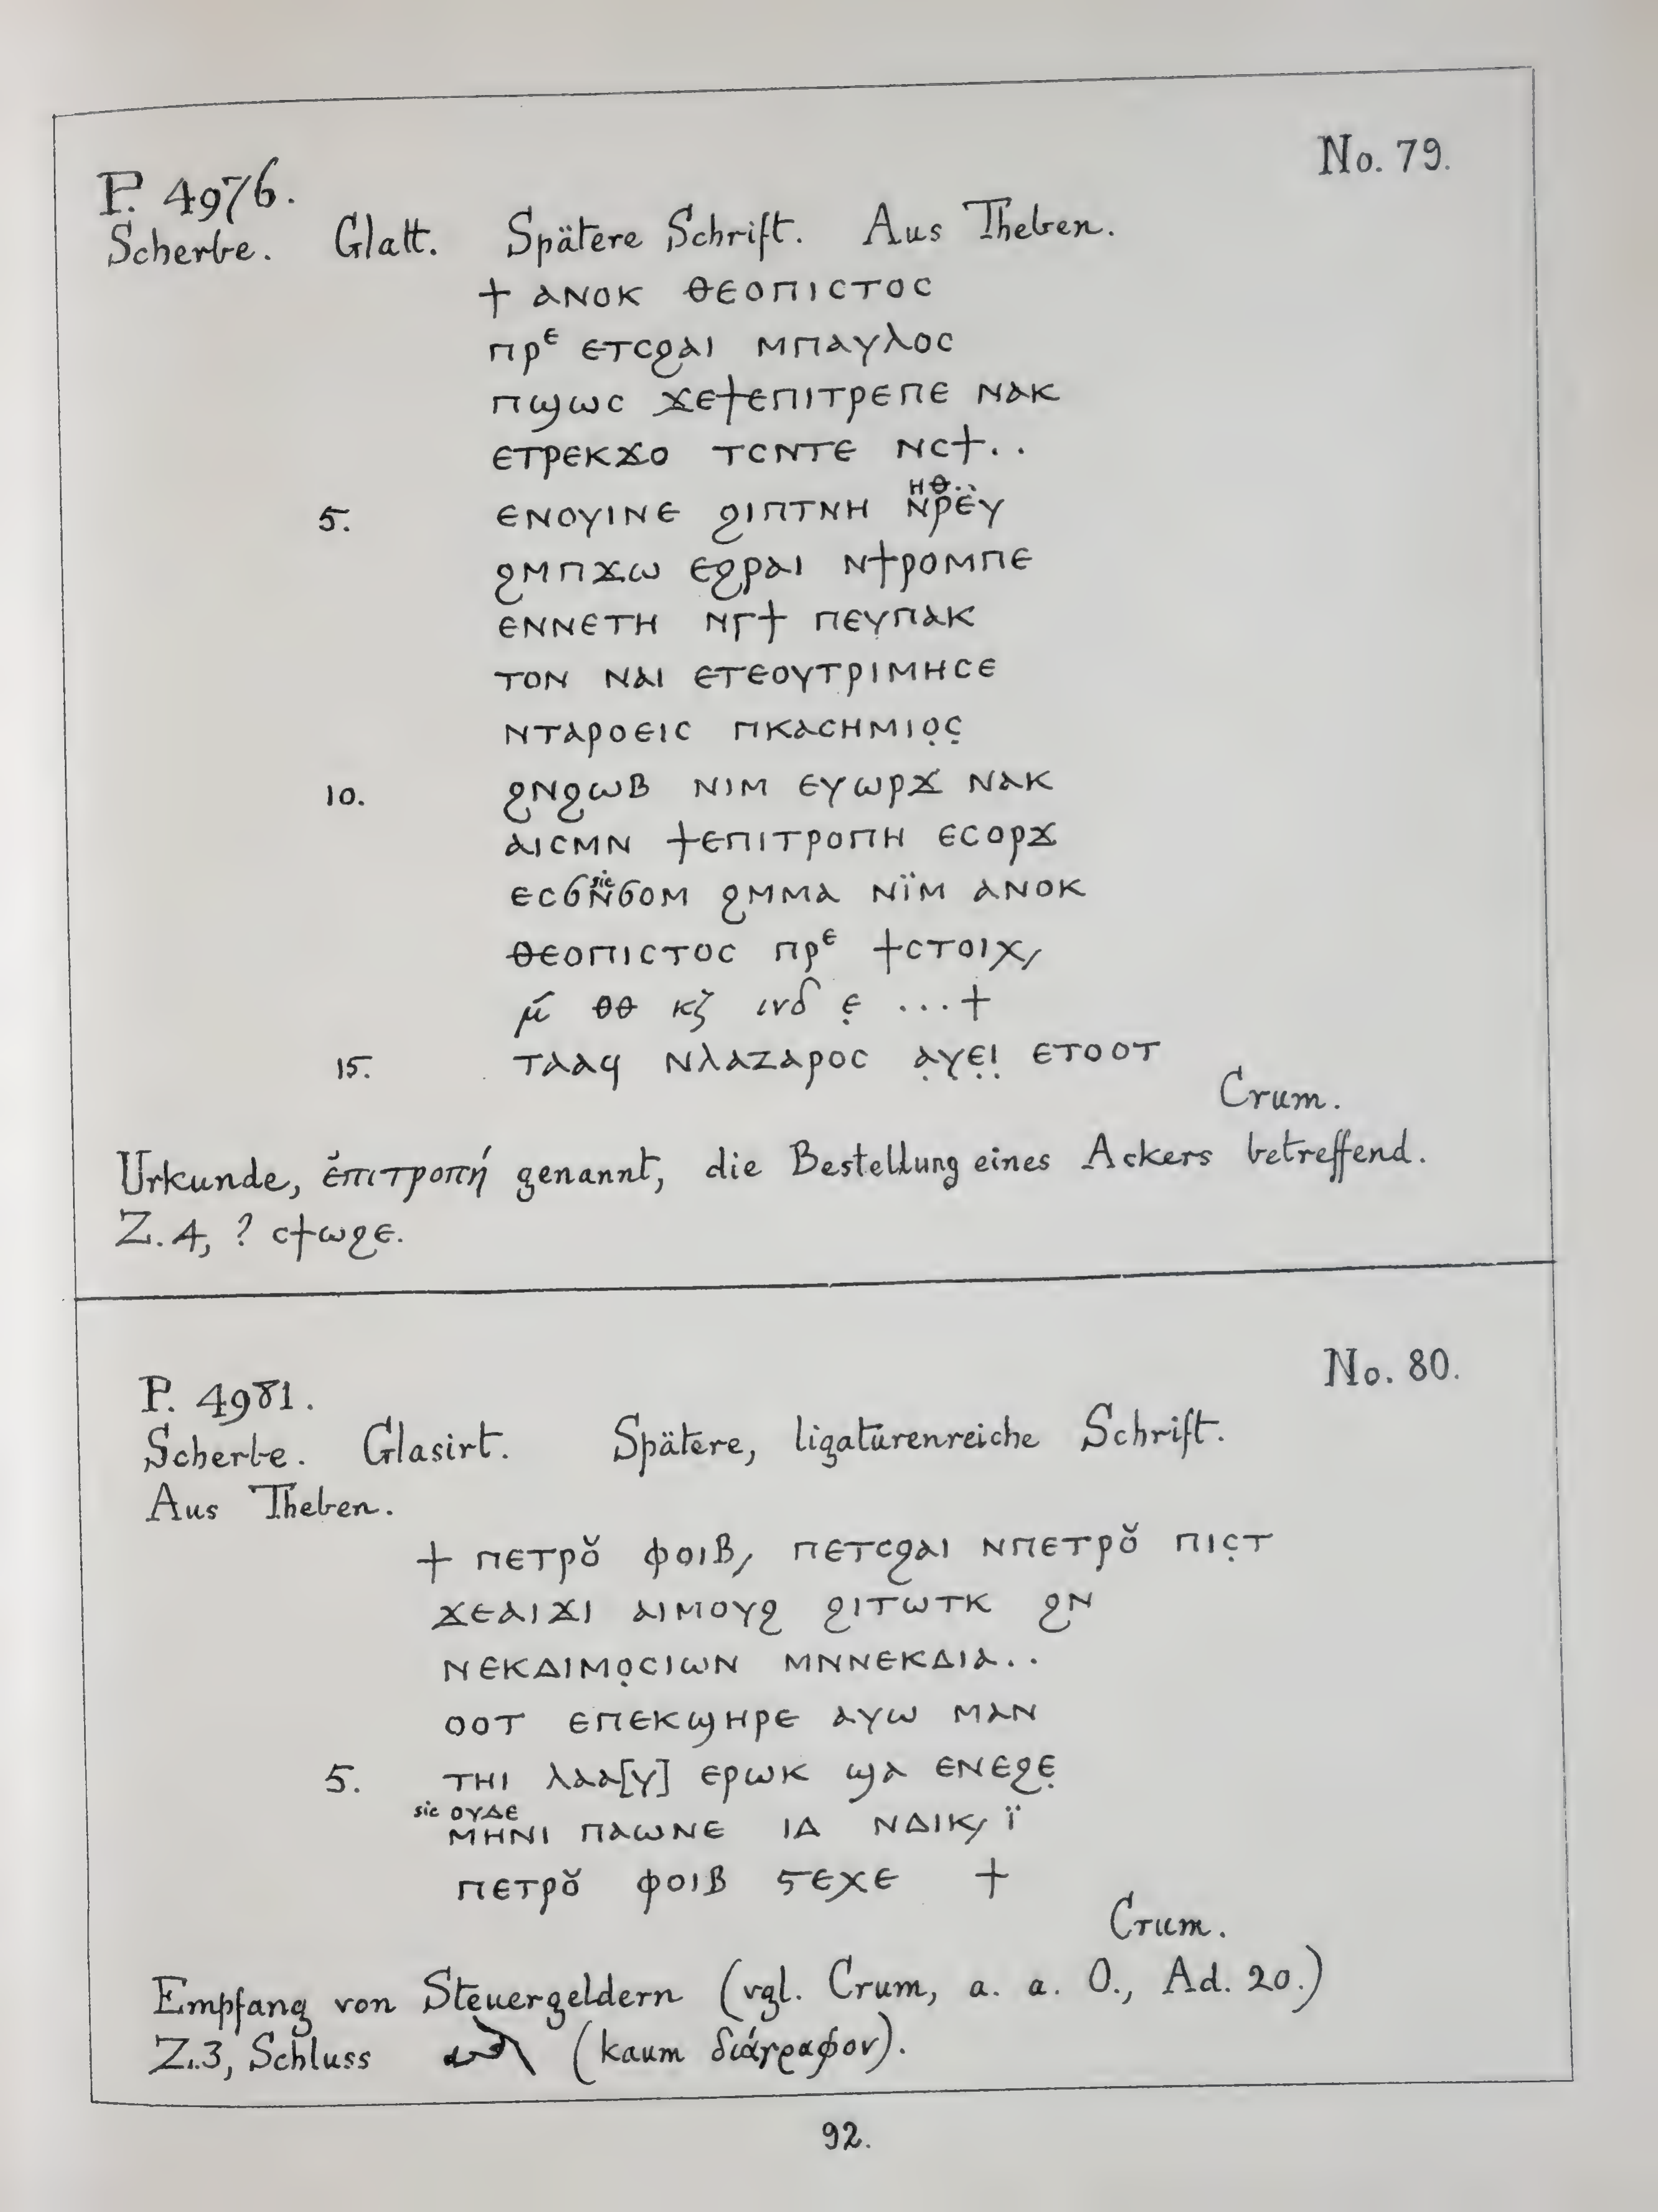 No. 79.
P. 4976.
Scherbe. Glatt. Spätere Schrift. Aus Theben.
+ ⲁⲛⲟⲕ ⲑⲉⲟⲡⲓⲥⲧⲟⲥ
ⲡⲣᵉ ⲉⲧⲥϩⲁⲓ ⲙⲡⲁⲩⲗⲟⲥ
ⲡϣⲱⲥ ϫⲉϯⲉⲡⲓⲧⲣⲉⲡⲉ ⲛⲁⲕ
ⲉⲧⲣⲉⲕϫⲟ ⲧⲥⲛⲧⲉ ⲛⲥϯ..
ⲏⲑ..
5. ⲉⲛⲟⲩⲓⲛⲉ ϩⲓⲡⲧⲛⲏ ⲛⲣⲉⲩ
ϩⲙⲡϫⲱ ⲉϩⲣⲁⲓ ⲛϯⲣⲟⲙⲡⲉ
ⲉⲛⲛⲉⲧⲏ ⲛⲅϯ ⲡⲉⲩⲡⲁⲕ
ⲧⲟⲛ ⲛⲁⲓ ⲉⲧⲉⲟⲩⲧⲣⲓⲙⲏⲥⲉ
ⲛⲧⲁⲣⲟⲉⲓⲥ ⲡⲕⲁⲥⲏⲙⲓⲟ̣ⲥ̣
10. ϩⲛϩⲱⲃ ⲛⲓⲙ ⲉⲩⲱⲣϫ ⲛⲁⲕ
ⲁⲓⲥⲙⲛ ϯⲉⲡⲓⲧⲣⲟⲡⲏ ⲉⲥⲟⲣϫ
sic
ⲉⲥϭⲛϭⲟⲙ ϩⲙⲙⲁ ⲛⲓ̈ⲙ ⲁⲛⲟⲕ
ⲑⲉⲟⲡⲓⲥⲧⲟⲥ ⲡⲣᵉ ϯⲥⲧⲟⲓⲭ/
μ̄ θθ κζ ινδ ε̣ ...+
15. ⲧⲁⲁϥ ⲛⲗⲁⲍⲁⲣⲟⲥ ⲁ̣ⲩ̣ⲉ̣ⲓ̣ ⲉⲧⲟⲟⲧ
Crum.
Urkunde, ἐπιτροπή genannt, die Bestellung eines Ackers betreffend.
Z. 4, ? ⲥϯⲱϩⲉ.
No. 80.
P. 4981.
Scherbe. Glasirt. Spätere, ligaturenreiche Schrift.
Aus Theben.
+ ⲡⲉⲧⲣⲟ̆ ⲫⲟⲓⲃ/ ⲡⲉⲧⲥϩⲁⲓ ⲛⲡⲉⲧⲣⲟ̆ ⲡⲓⲥ̣ⲧ
ϫⲉⲁⲓϫⲓ ⲁⲓⲙⲟⲩϩ ϩⲓⲧⲱⲧⲕ ϩⲛ
ⲛⲉⲕⲇⲓⲙⲟ̣ⲥⲓⲱⲛ ⲙⲛⲛⲉⲕⲇⲓⲁ..
ⲟⲟⲧ ⲉⲡⲉⲕϣⲏⲣⲉ ⲁⲩⲱ ⲙⲁⲛ
5. ⲧⲏⲓ ⲗⲁⲁ[ⲩ] ⲉⲣⲱⲕ ϣⲁ ⲉⲛⲉϩⲉ̣
sic ⲟⲩⲇⲉ
ⲙⲏⲛⲓ ⲡⲁⲱⲛⲉ ⲓⲇ ⲛⲇⲓⲕ/ ⲓ̈
ⲡⲉⲧⲣⲟ̆ ⲫⲟⲓⲃ ϛⲉⲭⲉ +
Crum.
Empfang von Steuergeldern (vgl. Crum, a. a. O., Ad. 20.)
Z. 3, Schluss (kaum διάγραφον).
92.